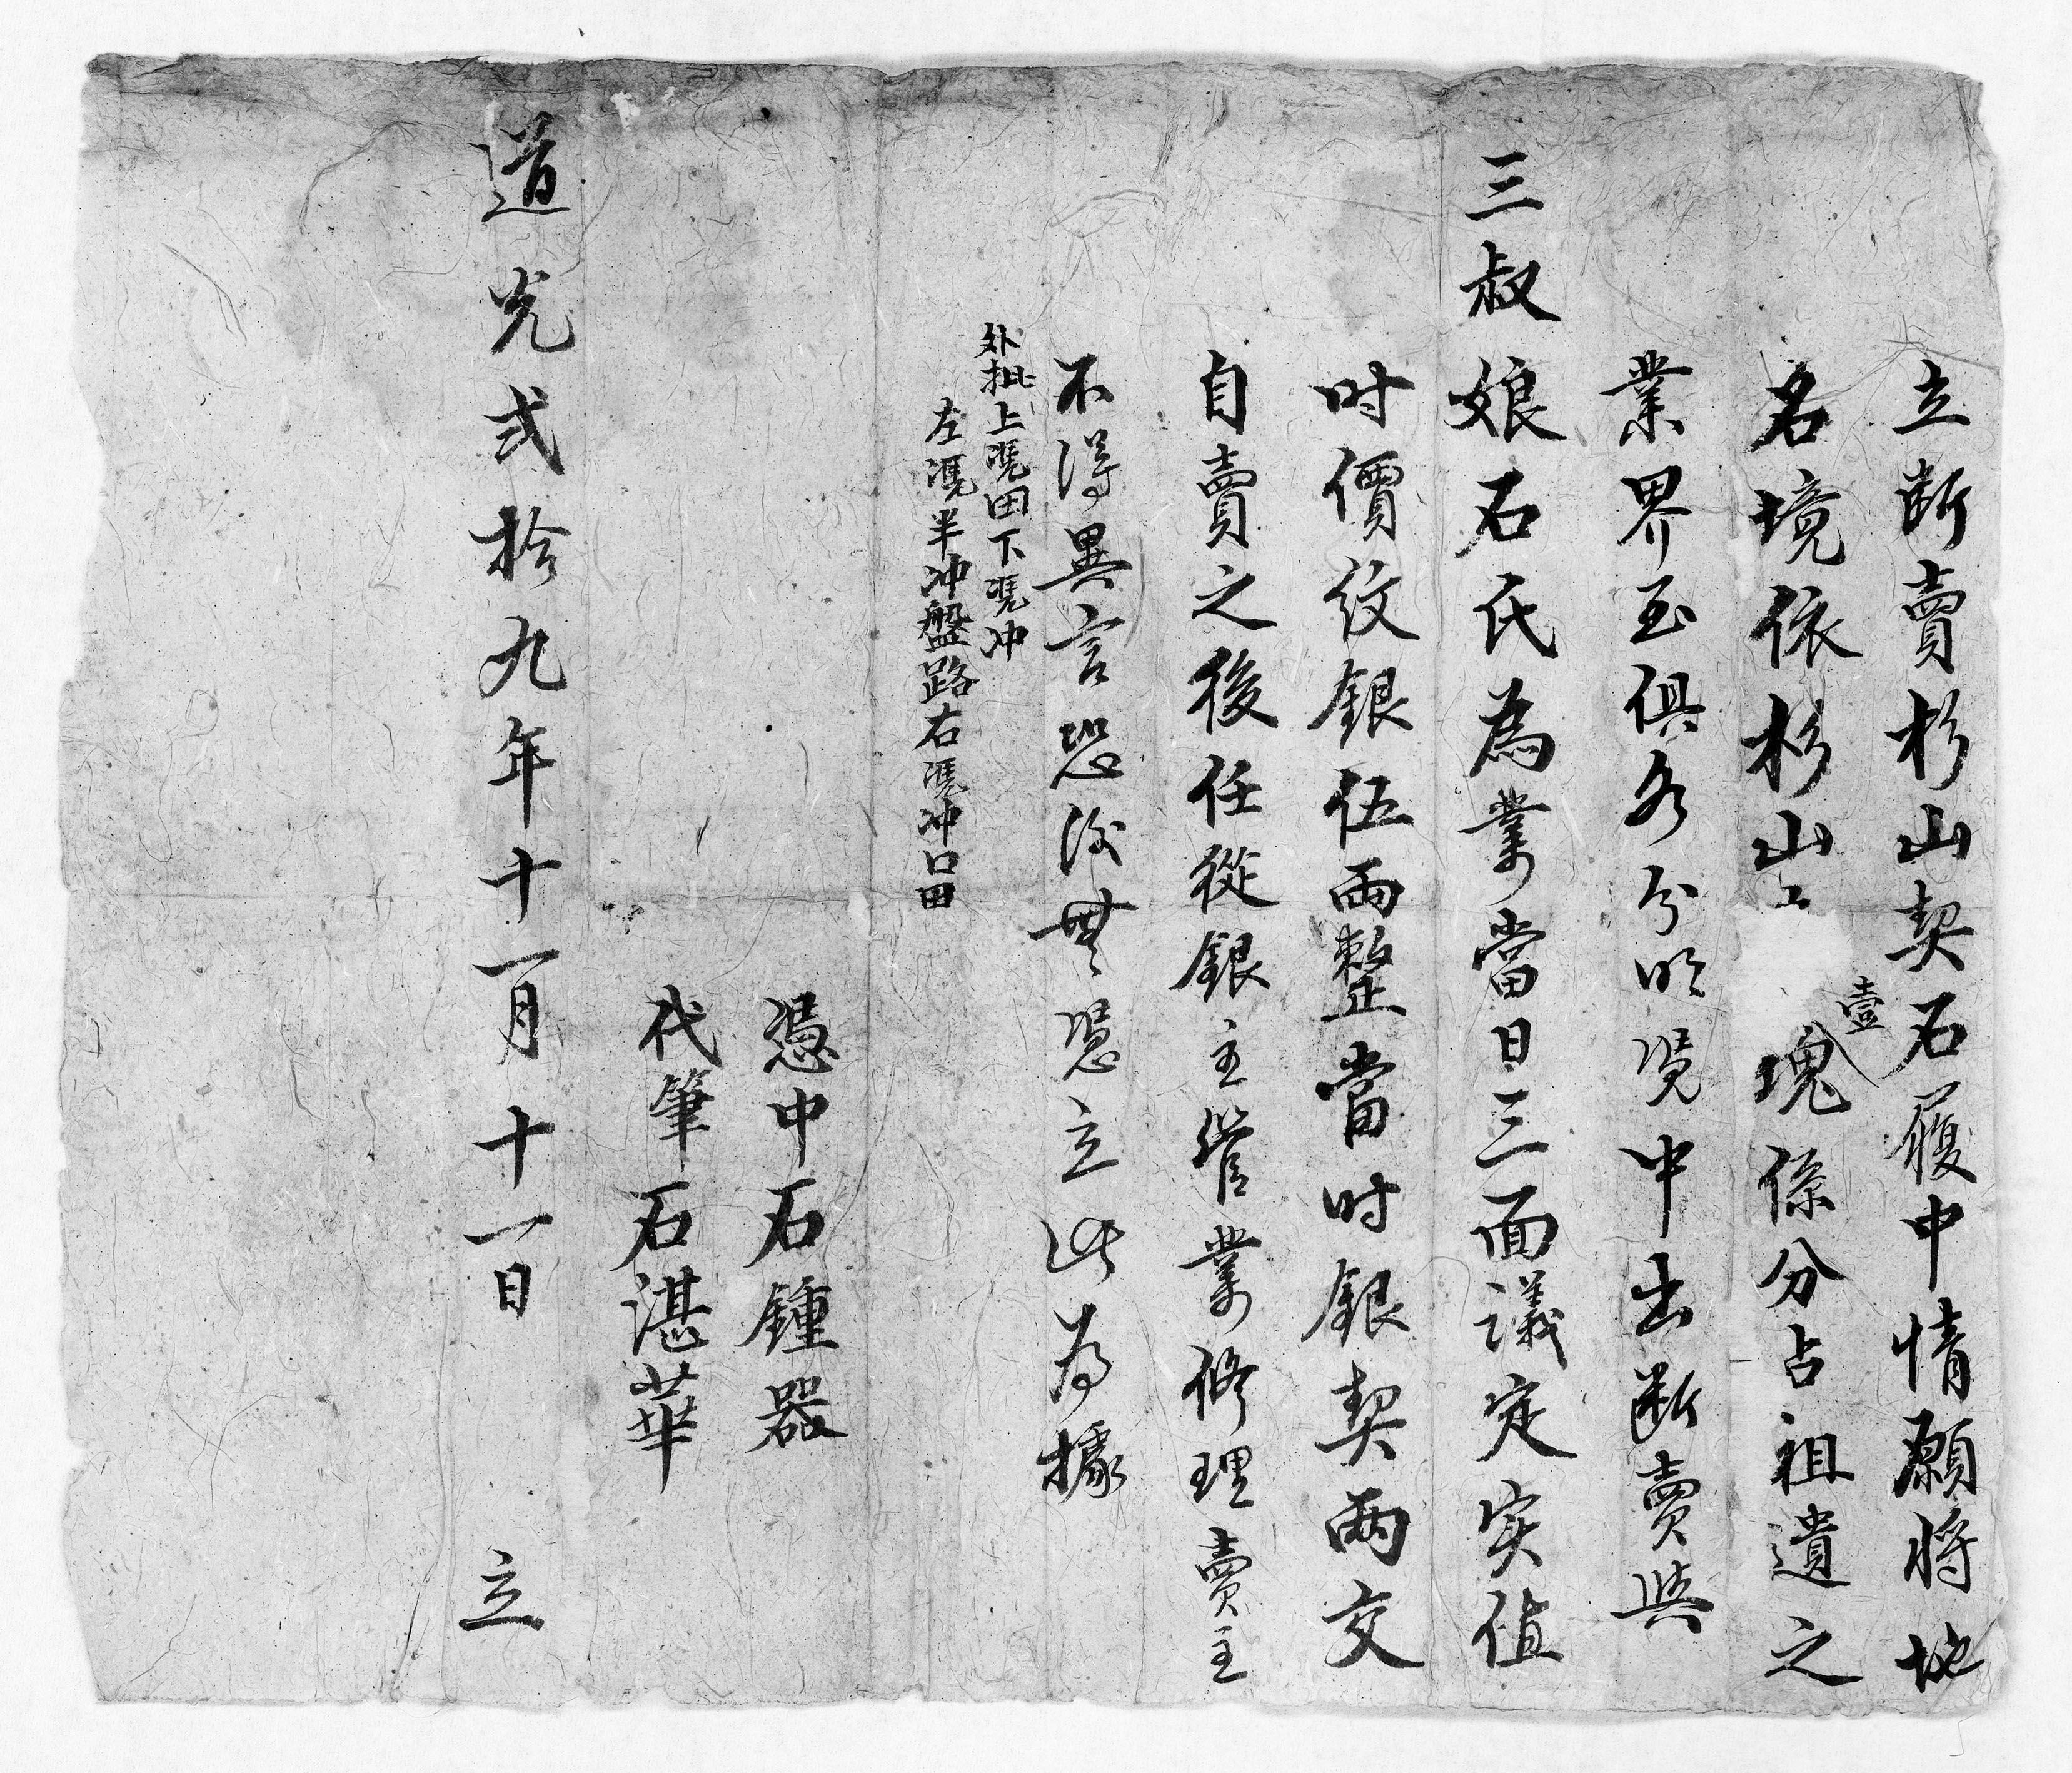 立断賣杉山契石履中情願將地
名境依杉山壹塊係分占祖遺之
業界至俱各分明凴中出断賣與
三叔娘石氏為業當日三面議定实值
时價紋銀伍両整當时銀契両交
自賣之後任從銀主管業修理賣主
不得異言恐後無憑立此為據
外批上凴田下凴冲
左凴半冲盤路右凴冲口田
憑中石鍾器
代筆石湛華
道光弍拾九年十一月十一日 立